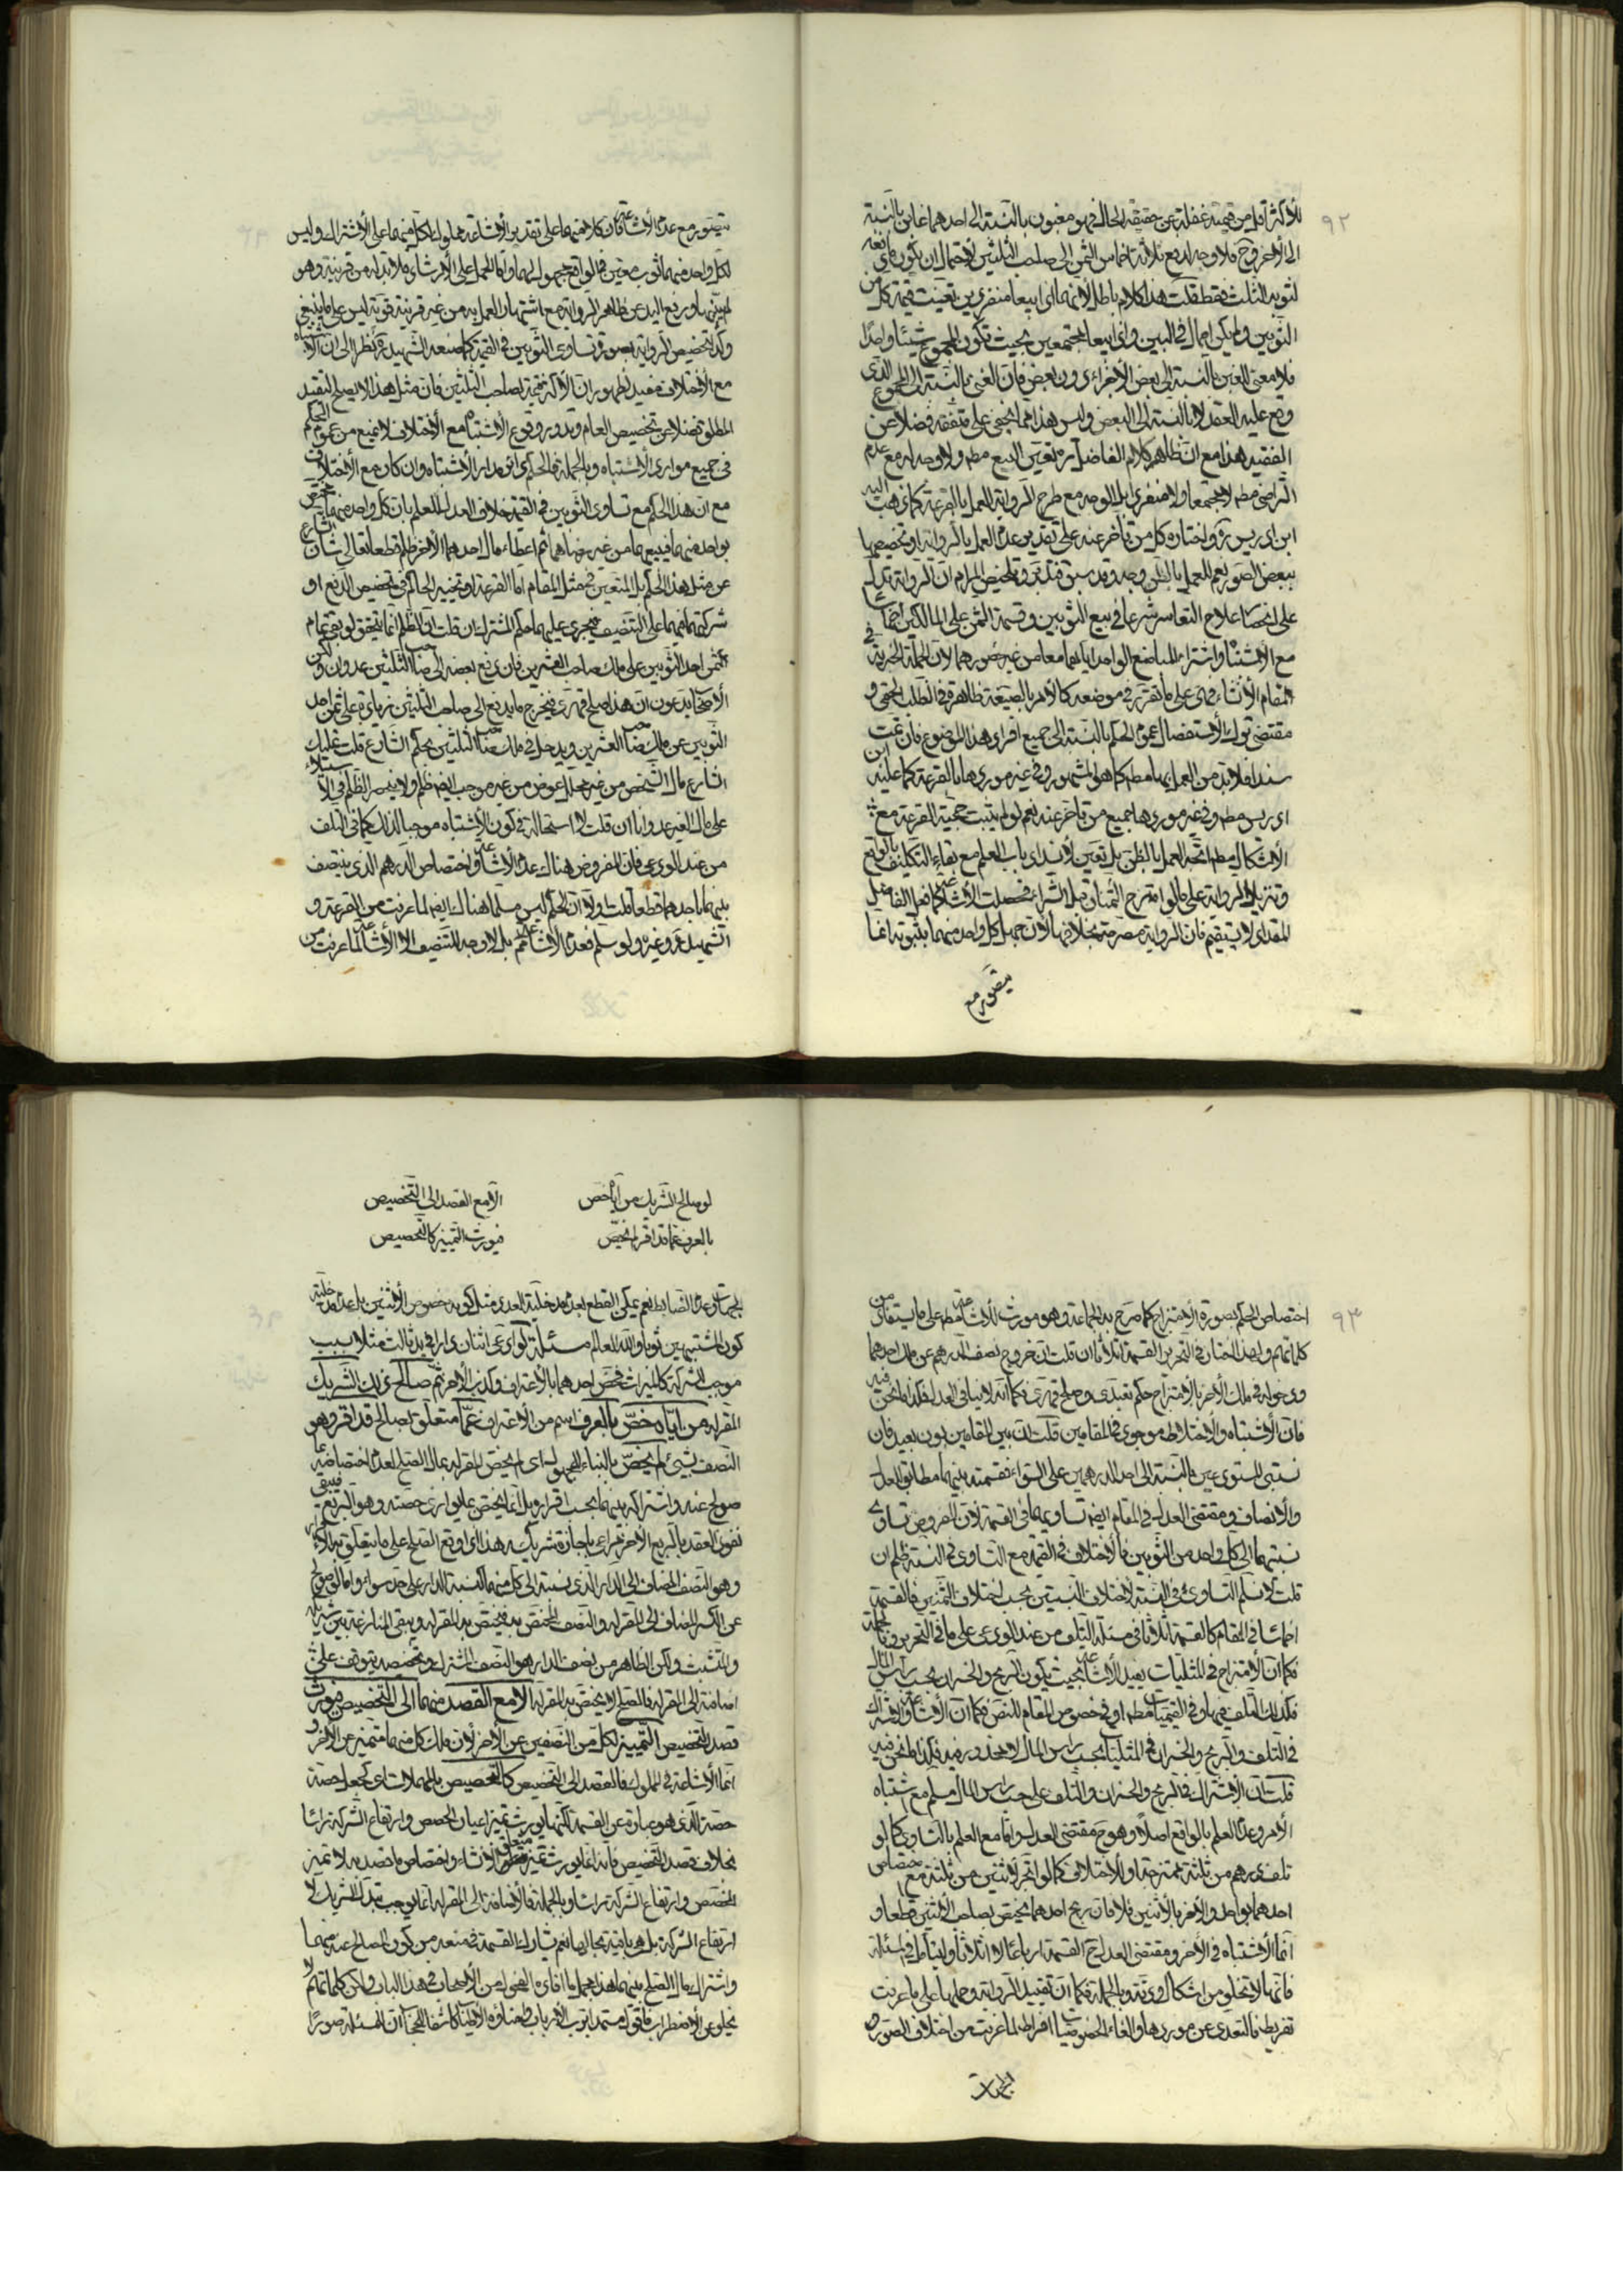 ٩٢
للأكثر اقل من قيمته غفلة عن حقيقة الحال فهو مغبون بالنسبة الى احدهما غابن بالنسبة
الى الآخر وح فلا وجه لدفع ثلاثة اخماس الثمن الى صاحب الثلثين لاحتمال ان يكون
لثوبه الثلث فقط قلت هذا كلام باطل لانهما اى ابيعا منفردين تعينت قيمة كل من
الثوبين ولم يكن اجمال في البين وان ابيعا مجتمعين بحيث تكون المجموع شيئا واحدًا
فلا معنى للغبن بالنسبة الى بعض الأجزاء دون بعض فان الغبن بالنسبة الى المجموع الذى
وقع عليه العقد لا بالنسبة الى البعض وليس هذا مما يخفى على متفقه فضلا عن
الفقيه هذا مع ان ظاهر كلام الفاضل ره تعين البيع مطم ولا وجه له مع عدم
التراضى مطم لا مجتمعا ولا منفردا بل الوجه مع طرح الرواية العمل بالقرعة كما ذهب اليه
ابن ادريس ره واختاره كل من تأخر عنه على تقدير عدم العمل بالرواية او تخصيصها
ببعض الصور نعم للعمل بالظن وجه وقد سبق فتدبر وتلخيص المرام ان الرواية تدل
على انحصار علاج التعاسر شرعا في بيع الثوبين وقسمة الثمن على المالكين اخماسا
مع الاشتباه وابتداء المباضع الواحد اياهما معا من غير ضور هما لان الجملة الخبرية في
المقام الأنشاء وهى على ما تقرر في موضعه كالأمر بالصيغة ظاهرة في الطلب الحتمى و
مقتضى ترك الاستفصال عموم الحكم بالنسبة الى جميع افراد هذا الموضوع فان تمت
سندا فلا بد من العمل بها مطم كما هو المشهور وفى غير موردها بالقرعة كما عليه ابن
ادريس مطم وفى غير موردها جميع من تأخر عنه نعم لو لم يثبت حجية القرعة مع
الاشكال مطم اتجه العمل بالظن بل تعين لانسداد باب العلم مع بقاء التكليف بالواقع
وتنزيل الرواية على ما لو امتزج الثمنان قبل الشراء فحصلت الأشاعة كما فعله الفاضل
المقداد لا يستقيم فان الرواية مصرحة بخلافه لان جهل كل واحد منهما بثوبه انما
يتصور مع
يتصور مع عدم الأشاعة فان كلا منهما على تقدير الأشاعة مملوك لكل منهما على الأشتراك وليس
لكل واحد منهما ثوب معين في الواقع مجهول لهما واما الحمل على الأرشاد فلا بد له من قرينة وهو
ورفع اليد عن ظاهر الرواية مع اشتهار العمل به من غير قرينة قوية ليس على ما ينبغى
وكذا تخصيص الرواية بصورة تساوى الثوبين في القيمة كما صنعه الشهيد ره نظرا الى ان الاشتباه
مع الأختلاف مفيد لظهور ان الأكثر قيمة لصاحب الثلثين فان مثل هذا لا يصلح لتقييد
المطلق فضلا عن تخصيص العام وندور وقوع الأشتباه مع الأختلاف لا يمنع من عموم الحكم
في جميع موارد الأشتباه وبالجملة فالحكم دائر مدار الأشتباه وان كان مع الأختلاف
مع ان هذا الحكم مع تساوى الثوبين في القيمة خلاف العدل للعلم بان كل واحد منهما مختص
بواحد منهما فبيعهما من غير رضاهما ثم اعطاء مال احدهما الآخر ظلم قطعا تعالى الشارع
عن مثل هذا الحكم بل المتعين في مثل المقام اما القرعة او تخيير الحاكم في تخصيص الدفع او
شركتهما فيهما على التنصيف فيجرى عليهما حكم المشترك ان قلت ان الظلم انما يتحقق لو بقى تمام
ثمن احد الثوبين على ملك صاحب العشرين فان دفع بعضه الى صاحب الثلثين عدوان ولكن
الأصحاب يدعون ان هذا صلح قهرى فيخرج ما يدفع الى صاحب الثلثين زيادة على ثمن احد
الثوبين عن ملك صاحب العشرين ويدخل في ملك صاحب الثلثين بحكم الشارع قلت تمليك
الشارع مال الشخص من غير جعل عوض من غير موجب ايضم ظلم ولا ينحصر الظلم في الاستيلاء
على مال الغير عدوانا ان قلت لا استحالة في كون الأشتباه موجبا لذلك كما في التلف
من عند الودعى فان المفروض هناك عدم الأشاعة واختصاص الدرهم الذى ينتصف
بينهما باحدهما قطعا قلت اولا ان الحكم ليس مسلما هناك ايضم لما عرفت من القرعة و
الشهيد ره وغيره ولو سلم فعدم الأشاعة ممم بل لا وجه للتنصيف الا الأشاعة لما عرفت من
٩٣
اختصاص الحكم بصورة الأمتزاج كما صرح به الجماعة وهو مورث للأشاعة مطم على ما يستفاد من
كلماتهم ولهذا اختار في التحرير القسمة اثلاثا ان قلت ان خروج نصف الدرهم عن ملك احدهما
ودخوله في ملك الآخر بالأمتزاج حكم تعبدى وصلح قهرى فكما انه لا ينافى العدل فكذا ما نحن فيه
فان الأشتباه والأختلاط موجود في المقامين قلت ان بين المقامين بون بعيد فان
نسبتى المستودعين بالنسبة الى احد الدرهمين على السواء فقسمته بينهما مطابق للعدل
والأنصاف ومقتضى العدل في المقام ايضم تساويهما في القسمة لان المفروض تساوى
نسبتهما الى كل واحد من الثوبين فالأختلاف في القسمة مع التساوى في النسبة ظلم ان
قلت لا نسلم التساوى في النسبة لاختلاف النسبتين بحسب اختلاف الثمنين فالقسمة
اخماسا في المقام كالقسمة اثلاثا في مسئلة التلف من عند الودعى على ما في التحرير وبالجملة
فكما ان الأمتزاج في المثليات يفيد الأشاعة بحيث يكون الربح والخسران بحسب راس المال
فكذلك التلف فيها وفى القيميات مطم او في خصوص المقام للنص فكما ان الأشاعة والأشتراك
في التلف والربح والخسران في المثليات بحسب راس المال لا محذور فيه فكذا ما نحن فيه
قلت ان الأشتراك في الربح والخسران والتلف على حسب راس المال مسلم مع اشتباه
الأمر وعدم العلم بالواقع اصلا وهو ح مقتضى العدل واما مع العلم بالتساوى كما لو
تلف درهم من ثلثة ممتزجة او الأختلاف كما لو اتجر لاثنين من ثلثة مع اختصاص
احدهما بواحد والآخر بالأثنين فلا فان ربح احدهما يختص بصاحب الأثنين قطعا و
انما الأشتباه في الآخر ومقتضى العدل ح القسمة ارباعا لا اثلاثا وليتأمل في المسئلة
فانها لا تخلو من اشكال ودقة وبالجملة فكما ان تقييد الرواية وحملها على ما عرفت
تفريط فالتعدى عن موردها والغاء الخصوصيات افراط لما عرفت من اختلاف الصور و
الجهات
لو صالح الشريك من اياه خص
الا مع القصد الى التخصيص
بالعرف عما قد اقر لم يخص
فيورث التمييز كالتحصيص
الجهات وعدم الضابط نعم يمكن القطع بعدم مدخلية العدد مثل كونه خصوص الأثنين بل عدم مدخلية
كون المشتبهين ثوبا والله العالم مسئلة لو ادعى اثنان دارا في يد ثالث مثلا بسبب
موجب للشركة كالميراث فخص احدهما بالأعتراف وكذب الآخر ثم صالح ذلك الشريك
المقر له من اياه خص بالعرف اسم من الأعتراف عما متعلق بصالح قد اقر وهو
النصف بشيئ لم يخص بالبناء للمجهول اى لم يختص المقر له بمال الصلح لعدم اختصاصه بما
صولح عنه واشتراكه بينهما بحسب اقراره بل انما يختص بما يوازى حصته وهو الربع فيبقى
نفوذ العقد بالربع الآخر فرارا باجازة شريكه هذا اذا وقع الصلح على ما يتعلق به الأقرار
وهو النصف المضاف الى الدار الذى نسبته الى كل منهما كنسبة الدار على حد سواء واما لو صولح
عن الكسر المضاف الى المقر له والنصف المختص به فيختص به المقر له ويبقى المنازعة بين شريكه
والمتشبث ولكن الظاهر من نصف الدار هو النصف المشترك وتخصيصه يتوقف على
اضافته الى المقر له فالصلح لا يختص به المقر له الا مع القصد منهما الى التخصيص فيورث
قصد التخصيص التمييز لكل من النصفين عن الآخر لان ملك كل منهما متميز عن الآخر و
انما الأشاعة في المملوك فالقصد الى التخصيص كالتحصيص بالمهملات اى كجعل حصة
حصة الذى هو عبارة عن القسمة لكنها يورث تميز اعيان الحصص وارتفاع الشركة راسا
بخلاف قصد التخصيص فانه انما يورث تميز متعلق الأنشاء واختصاص ما قصد به لا تميز
الحصص وارتفاع الشركة راسا وبالجملة فالأضافة الى المقر له انما يوجب تبدل الشريك لا
ارتفاع الشركة بل هى باقية بحالها نعم يشارك القسمة في منعه من كون المصالح عنه منهما
واشتراك مال الصلح بينهما هذا مجمل ما افاده الفحول من الأصحاب في هذا الباب ولكن كلماتهم لا
يخلو عن الأضطراب فاقول مستمدا من رب الأرباب